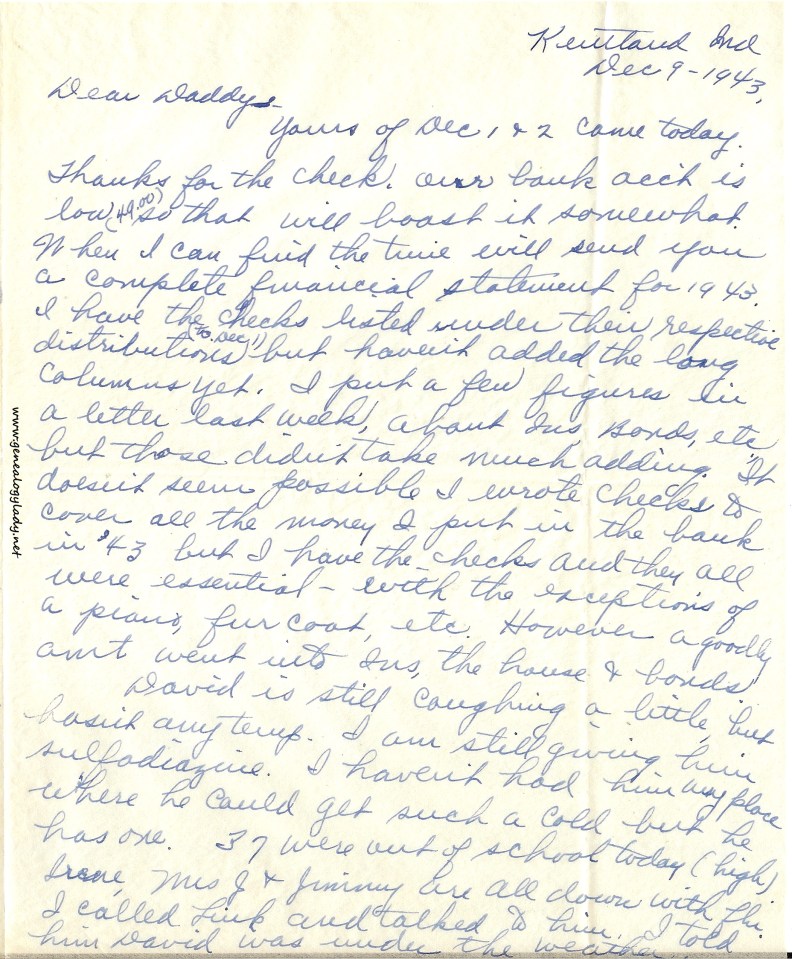 Kentland Ind
Dec 9-1943,
Dear Daddy-
Yours of Dec 1 & 2 came today.
Thanks for the check. Our bank acc't is
low (49.00) so that will boost it somewhat.
When I can find the time will send you
a complete financial statement for 1943.
I have the checks listed under their respective
distributions (to Dec 1) but haven't added the long
columns yet. I put a few figures in
a letter last week, about Ins, Bonds, etc
but those didn't take much adding. It
doesn't seem possible I wrote checks to
cover all the money I put in the bank
in '43 but I have the checks and they all
were essential - with the exceptions of
a piano, fur coat, etc. However a goodly
am't went into Ins, the house & bonds.
David is still coughing a little but
hasn't any temp. I am still giving him
sulfadiazine. I haven't had him any place
where he could get such a cold but he
has one. 37 were out of school today (high)
Irene, Mrs J & Jimmy are all down with flu.
I called Link and talked to him. I told
him David was under the weather.
www.genealogylady.net